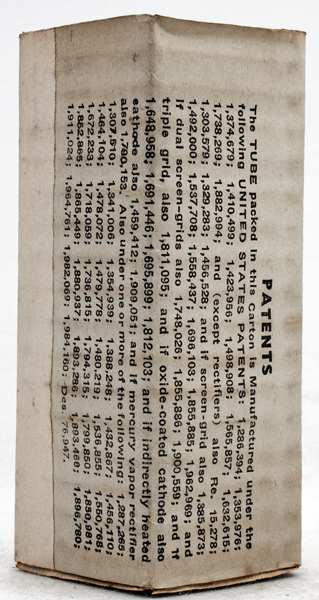 PATENTS
The TUBE packed in this Carton is Manufactured under the
following UNITED STATES PATENTS: 1,286,394; 1,353,976;
1,374,679; 1,410,499; 1,423,956; 1,498,908; 1,565,857; 1,632,615;
1,738,269; 1,882,994; and (except rectifiers) also Re. 15,278;
1,303,579; 1,329,283; 1,456,528; and if screen-grid also 1,385,873;
1,492,000; 1,537,708; 1,558,437; 1,696,103; 1,855,885; 1,962,969; and
if dual screen-grids also 1,748,026; 1,855,886; 1,900,559; and if
triple grid, also 1,811,095; and if oxide-coated cathode also
1,648,958; 1,691,446; 1,695,899; 1,812,103; and if indirectly heated
cathode also 1,459,412; 1,909,051; and if mercury vapor rectifier
also 1,790,153. Also under one or more of the following: 1,287,265;
1,307,510; 1,341,006; 1,354,939; 1,388,248; 1,432,867; 1,456,110;
1,464,104; 1,478,072; 1,479,778; 1,480,219; 1,536,855; 1,550,768;
1,672,233; 1,718,059; 1,739,815; 1,794,315; 1,799,850; 1,830,981;
1,852,865; 1,865,449; 1,880,937; 1,893,286; 1,893,466; 1,896,780;
1,911,024; 1,964,761; 1,982,069; 1,984,160; Des. 76,947.